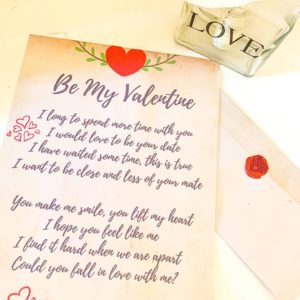 LOVE
Be My Valentine
I long to spend more time with you
I would love to be your date
I have waited some time, this is true
I want to be close and less of your mate
You make me smile, you lift my heart
I hope you feel like me
I find it hard when we are apart
Could you fall in love with me?